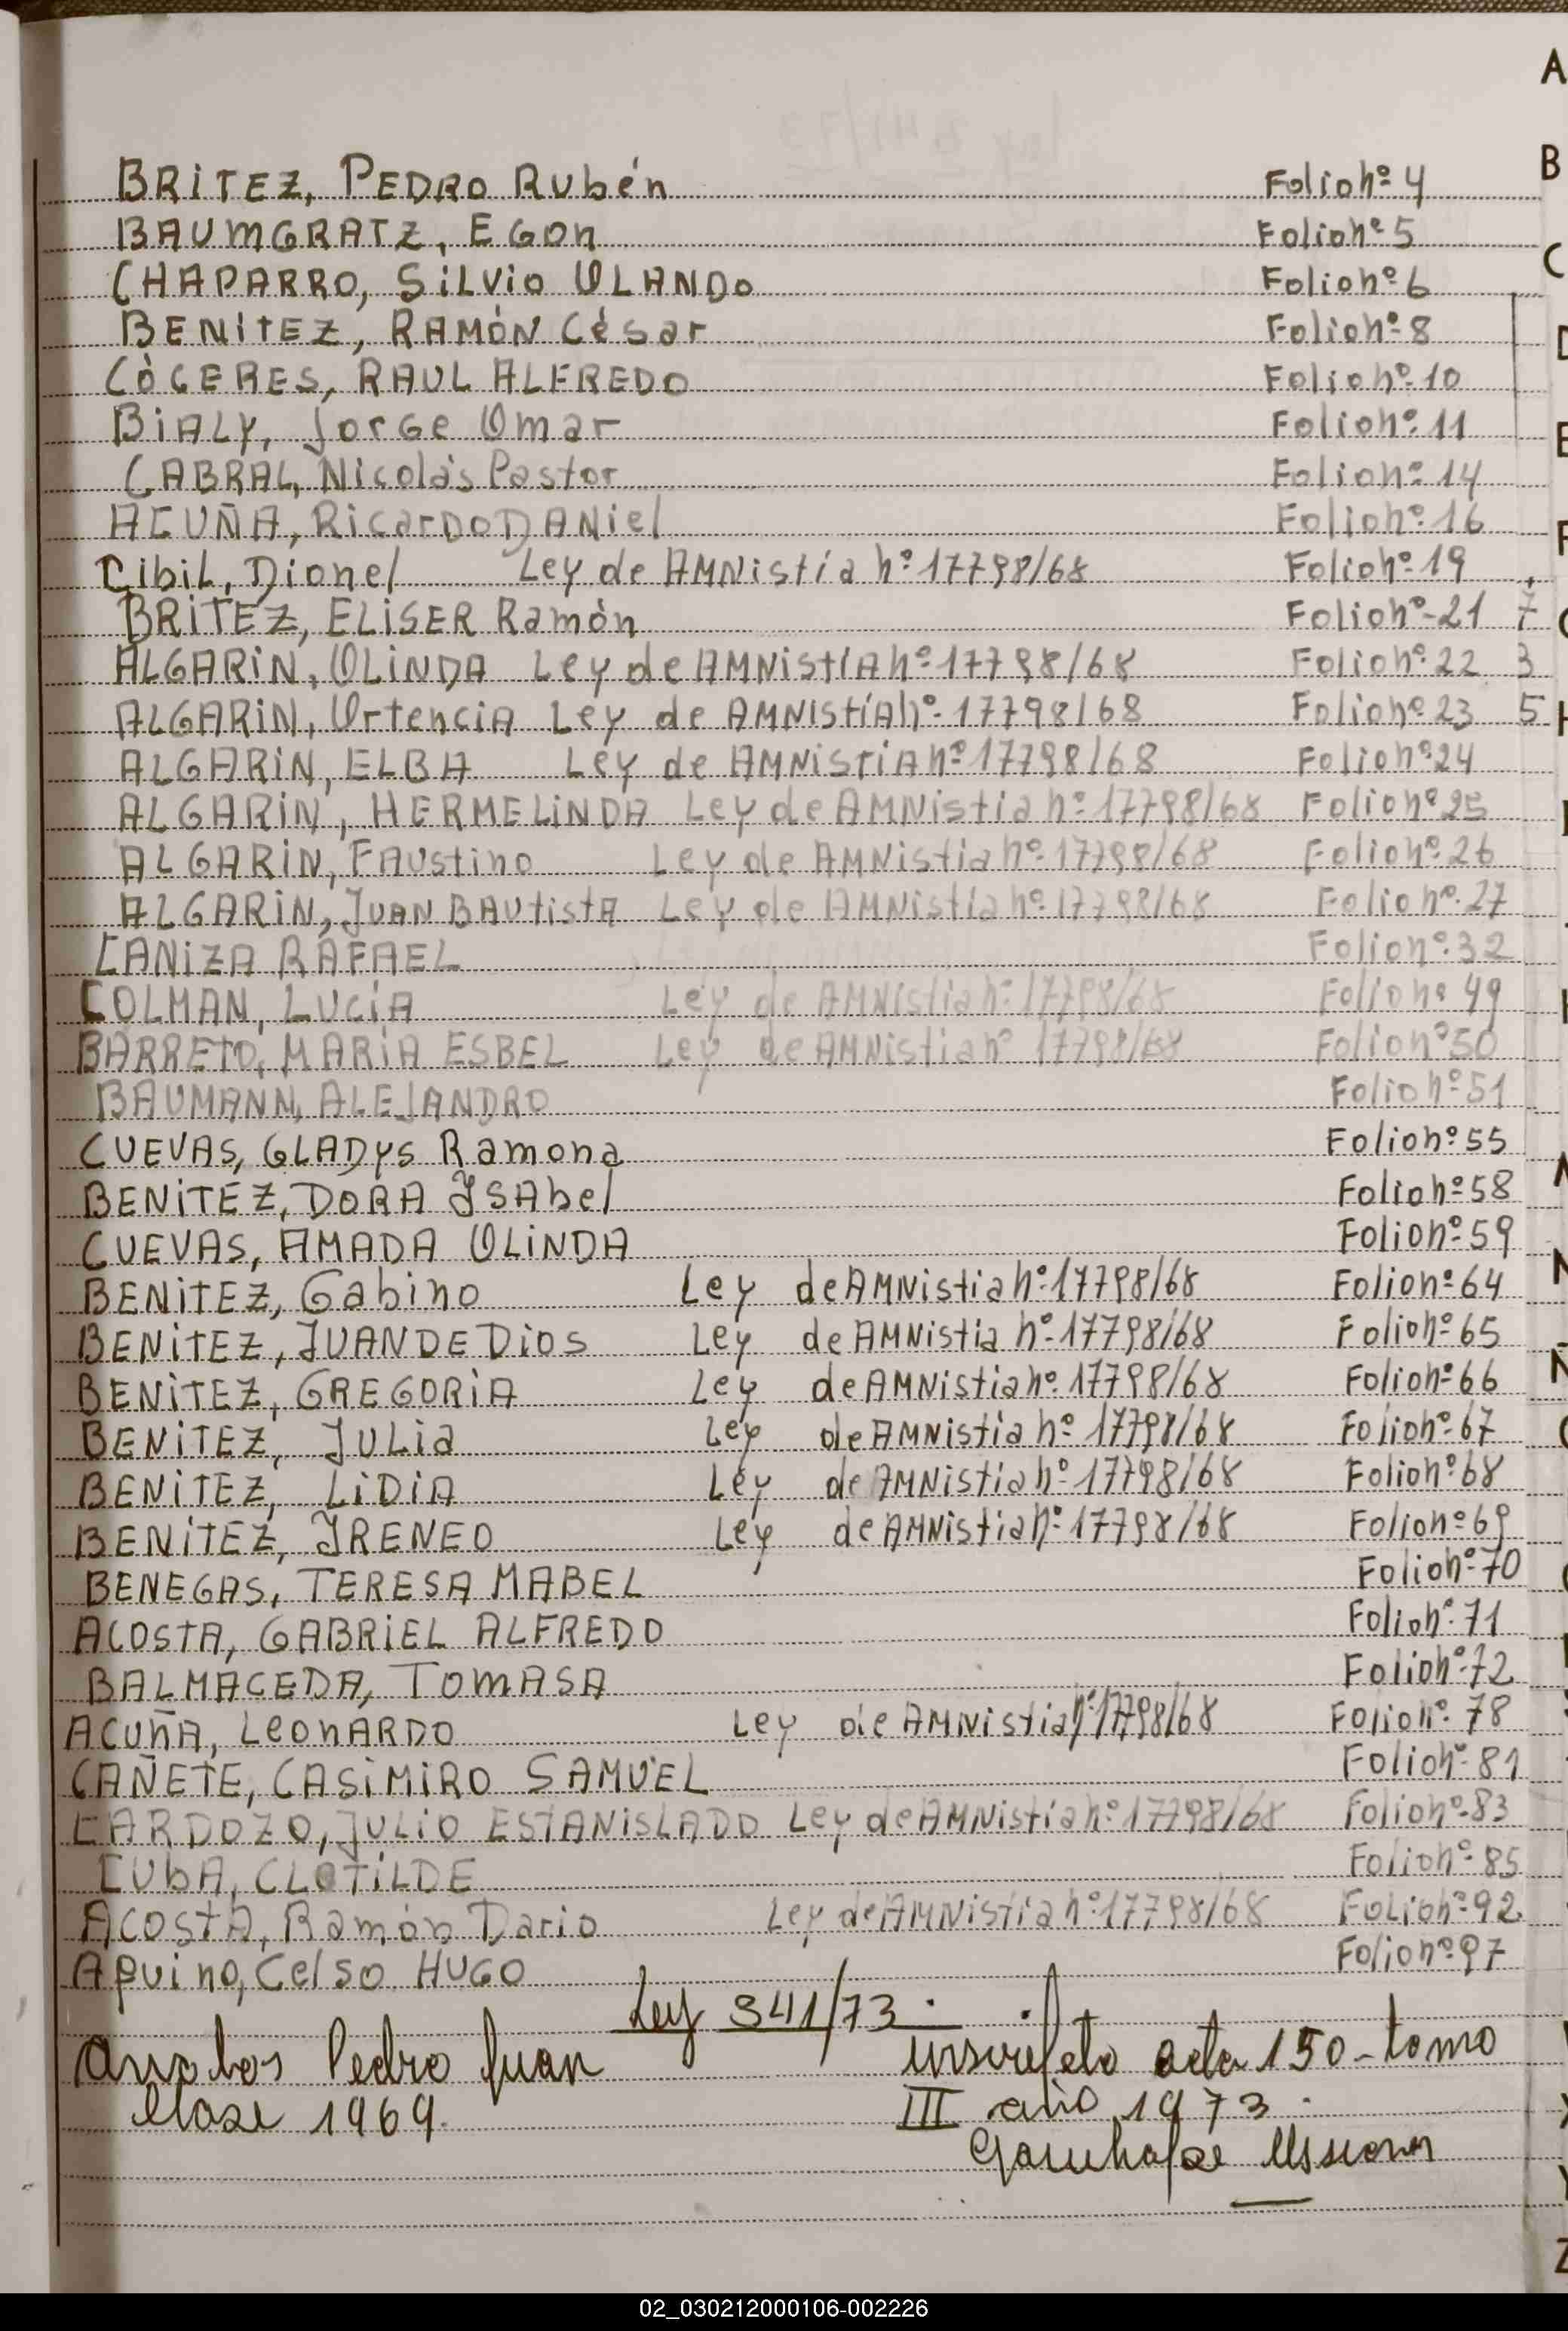 BRITEZ, PEDRO RUbén Folio nº 4
BAUMGRATZ, EGOn Folio nº 5
CHAPARRO, SILVIO OLANDO Folio nº 6
BENITEZ, RAMÓN César Folio nº 8
CÓCERES, RAUL ALFREDO Folio nº 10
BIALY, Jorge Omar Folio nº 11
CABRAL, Nicolás Pastor Folio nº 14
ACUÑA, RicarDO DANiel Folio nº 16
Cibil, Dionel Ley de AMNistía nº 17798/68 Folio nº 19
BRITEZ, ELISER Ramón Folio nº 21 7
ALGARIN, OLINDA Ley de AMNistía nº 17798/68 Folio nº 22 3
ALGARIN, Ortencia Ley de AMNistía nº 17798/68 Folio nº 23 5
ALGARIN, ELBA Ley de AMNistia nº 17798/68 Folio nº 24
ALGARIN, HERMELINDA Ley de AMNistia nº 17798/68 Folio nº 25
ALGARIN, FAUstino Ley de AMNistia nº 17798/68 Folio nº 26
ALGARIN, JUAN BAUtistA Ley de AMNistia nº 17798/68 Folio nº 27
CANIZA RAFAEL Folio nº 32
COLMAN, LUCÍA Ley de AMNistia nº 17798/68 Folio nº 49
BARRETO, MARÍA ESBEL Ley de AMNistia nº 17798/68 Folio nº 50
BAUMANN, ALEJANDRO Folio nº 51
CUEVAS, GLADYS Ramona Folio nº 55
BENITEZ, DORA ISAbel Folio nº 58
CUEVAS, AMADA OLINDA Folio nº 59
BENITEZ, Gabino Ley de AMNistia nº 17798/68 Folio nº 64
BENITEZ, JUAN DE Dios Ley de AMNistia nº 17798/68 Folio nº 65
BENITEZ, GREGORIA Ley de AMNistia nº 17798/68 Folio nº 66
BENITEZ, JULia Ley de AMNistia nº 17798/68 Folio nº 67
BENITEZ, LIDIA Ley de AMNistia nº 17798/68 Folio nº 68
BENITEZ, IRENEO Ley de AMNistia nº 17798/68 Folio nº 69
BENEGAS, TERESA MABEL Folio nº 70
ACOSTA, GABRIEL ALFREDO Folio nº 71
BALMACEDA, TOMASA Folio nº 72
ACUÑA, LEONARDO Ley de AMNistia nº 17798/68 Folio nº 78
CAÑETE, CASIMIRO SAMUEL Folio nº 81
CARDOZO, JULIO ESTANISLADO Ley de AMNistía nº 17798/68 Folio nº 83
CUbA, CLOTILDE Folio nº 85
ACOSTA, Ramón Dario Ley de AMNistia nº 17798/68 Folio nº 92
Aquino, Celso HUGO Folio nº 97
Ley 341/73
Pedro Juan acta 150 - tomo
clase 1969. III año 1973.
Misiones
A
B
C
D
E
F
G
H
02_030212000106-002226